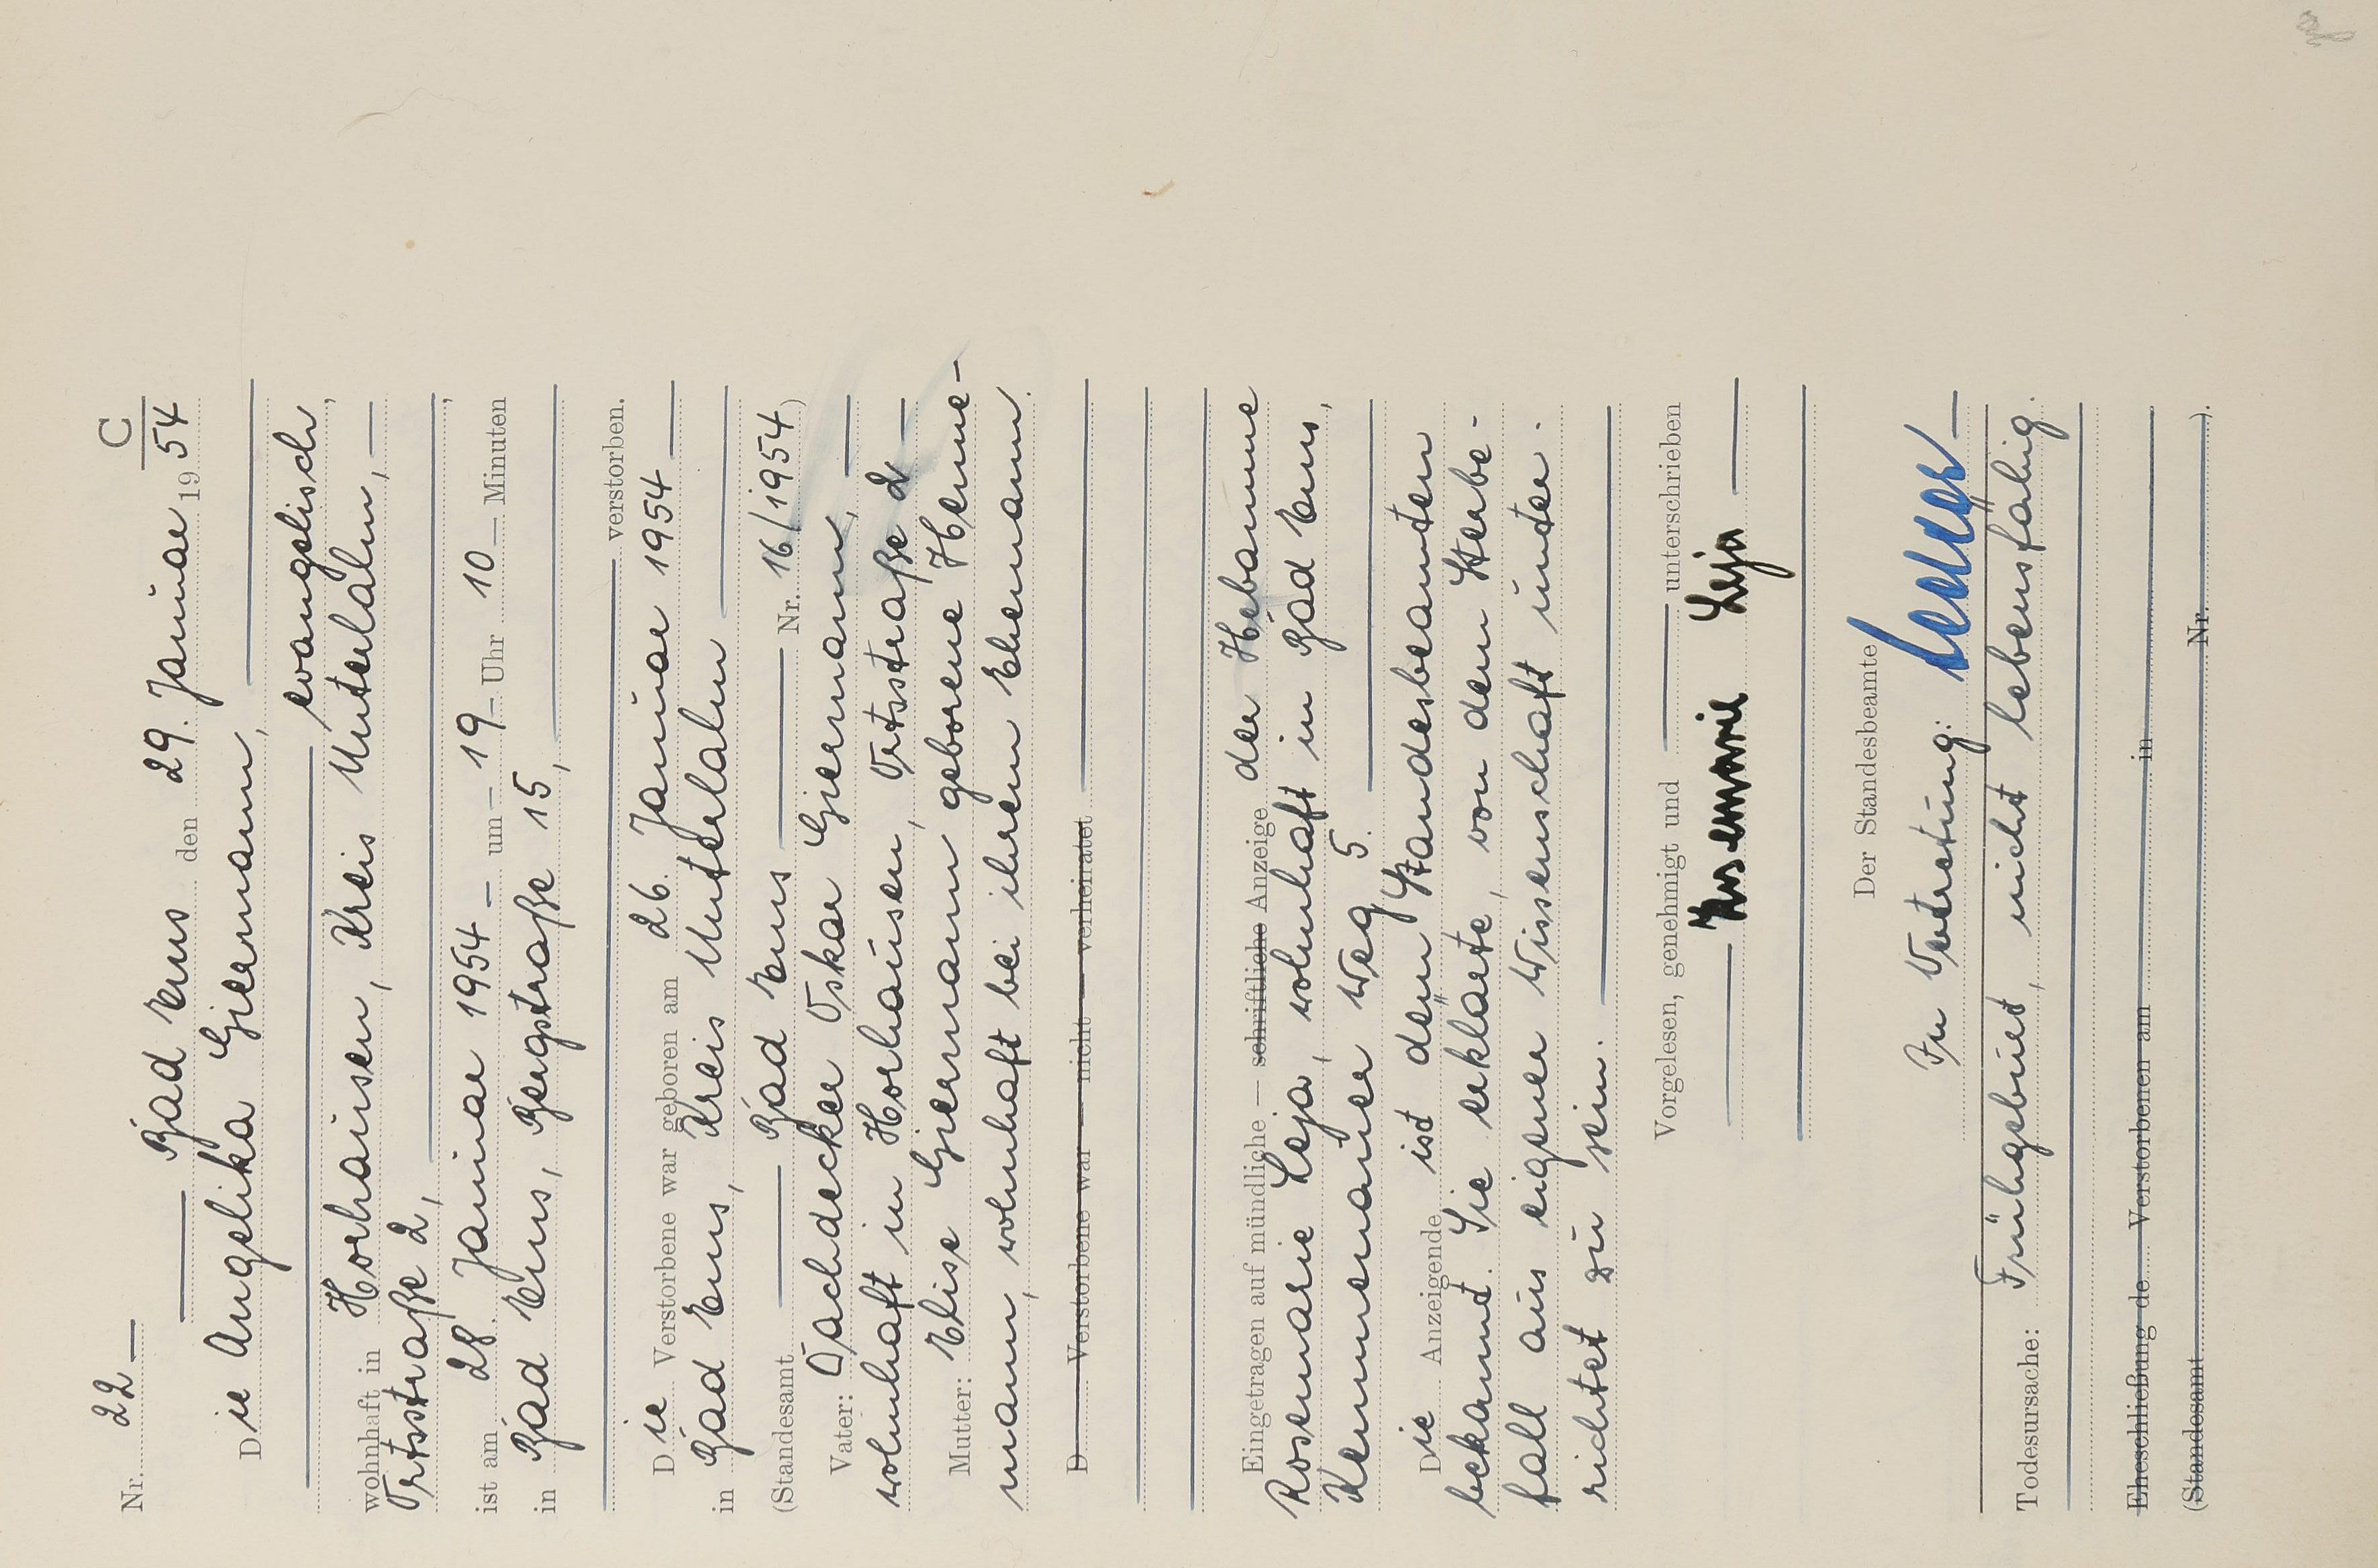 C
Nr. 22
Bad Ems den 29. Januar 1954
Die Angelika Giermann,
evangelisch,
wohnhaft in Horhausen, Kreis Unterlahn,
Ortsstraße 2,
ist am 28. Januar 1954 um 19 Uhr 10 Minuten
in Bad Ems, Bergstraße 15,
verstorben.
Die Verstorbene war geboren am 26. Januar 1954
in Bad Ems, Kreis Unterlahn
(Standesamt Bad Ems Nr. 16/1954)
Vater: Dachdecker Oskar Giermann,
wohnhaft in Horhausen, Ortsstraße 2
Mutter: Elise Giermann geborene Henne-
mann, wohnhaft bei ihrem Ehemann.
D Verstorbene war – nicht – verheiratet
Eingetragen auf mündliche – schriftliche Anzeige der Hebamme
Rosemarie Leja, wohnhaft in Bad Ems,
Kemmenauer Weg 5.
Die Anzeigende ist dem Standesbeamten
bekannt. Sie erklärte, von dem Sterbe-
fall aus eigener Wissenschaft unter-
richtet zu sein.
Vorgelesen, genehmigt und unterschrieben
Rosemarie Leja
Der Standesbeamte
In Vertretung:
Todesursache: Frühgeburt, nicht lebensfähig.
Eheschließung de Verstorbenen am in
(Standesamt Nr. ).